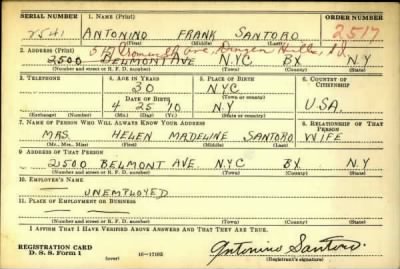 SERIAL NUMBER 1. NAME (Print) ORDER NUMBER
7541 ANTONINO FRANK SANTORO 2517
(First) (Middle) (Last)
2. ADDRESS (Print)
2500 BELMONT AVE N.Y.C BX N.Y
(Number and street or R. F. D. number) (Town) (County) (State)
3. TELEPHONE 4. AGE IN YEARS 5. PLACE OF BIRTH 6. COUNTRY OF CITIZENSHIP
30 NYC
DATE OF BIRTH (Town or county)
4 25 10 N.Y USA.
(Exchange) (Number) (Mo.) (Day) (Yr.) (State or country)
7. NAME OF PERSON WHO WILL ALWAYS KNOW YOUR ADDRESS 8. RELATIONSHIP OF THAT PERSON
MRS. HELEN MADELINE SANTORO WIFE
(Mr., Mrs., Miss) (First) (Middle) (Last)
9. ADDRESS OF THAT PERSON
2500 BELMONT AVE. N.Y.C BX N.Y
(Number and street or R. F. D. number) (Town) (County) (State)
10. EMPLOYER'S NAME
UNEMPLOYED
11. PLACE OF EMPLOYMENT OR BUSINESS
(Number and street or R. F. D. number) (Town) (County) (State)
I AFFIRM THAT I HAVE VERIFIED ABOVE ANSWERS AND THAT THEY ARE TRUE.
REGISTRATION CARD
D. S. S. Form 1 (over) Antonino Santoro.
(Registrant's signature)